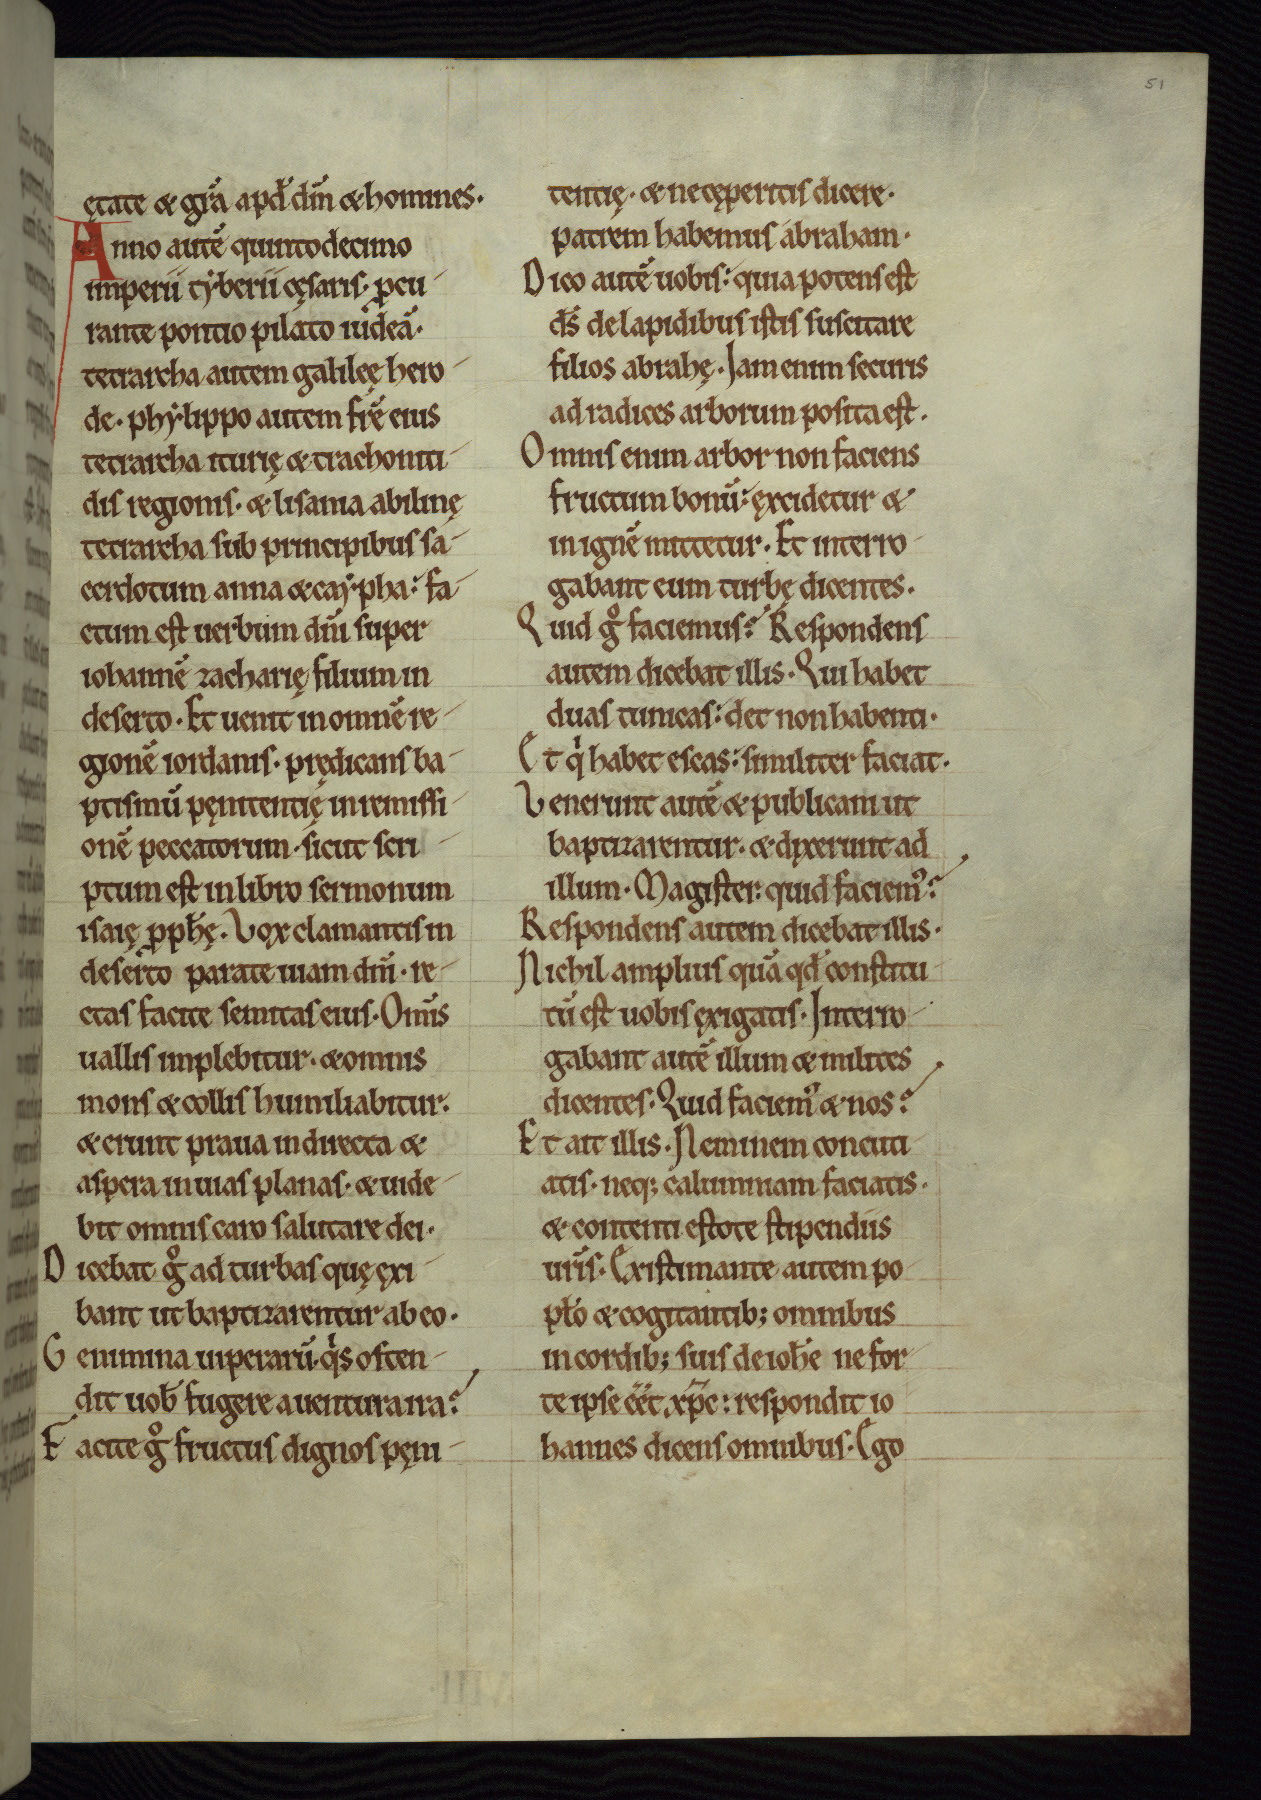 51
ętate & gr̄a apđ dm̄ & homines.
Anno autē quintodecimo
imperii tẏberii cęsaris. ꝓcu-
rante pontio pilato iudeā.
tetrarcha autem galileę hero-
de. phẏlippo autem fr̄e eius
tetrarcha iturię & trachoniti-
dis regionis. & lisania abilinę
tetrarcha sub principibus sa-
cerdotum anna & caẏpha: fa-
ctum est uerbum dn̄i super
iohannē zacharię filium in
deserto. Et uenit in omnē re-
gionē iordanis. prędicans ba-
ptismū pęnitentię in remissi-
onē peccatorum. sicut scri-
ptum est in libro sermonum
isaię ꝓph̄ę. Vox clamantis in
deserto parate uiam dn̄i. re-
ctas facite semitas eius. Om̄is
uallis implebitur. & omnis
mons & collis humiliabitur.
& erunt praua in directa &
aspera in uias planas. & uide-
bit omnis caro salutare dei.
Dicebat g̊ ad turbas quę exi-
bant ut baptizarentur ab eo.
Genimina uiperarū. q̇s osten-
dit uob̄ fugere a uentura ira?
Facite g̊ fructus dignos pęni-
tentię. & ne cęperitis dicere.
patrem habemus abraham.
Dico autē uobis: quia potens est
ds̄ de lapidibus istis suscitare
filios abrahę. Jam enim securis
ad radices arborum posita est.
Omnis enim arbor non faciens
fructum bonū: ęxcidetur &
in ignē mittetur. Et interro-
gabant eum turbę dicentes.
Quid g̊ faciemus? Respondens
autem dicebat illis. Qui habet
duas tunicas: det non habenti.
Et q̇ habet escas: similiter faciat.
Venerunt autē & publicani ut
baptizarentur. & dixerunt ad
illum. Magister: quid faciem᾿?
Respondens autem dicebat illis.
Nichil amplius quā qđ constitu-
tū est uobis ęxigatis. Interro-
gabant autē illum & milites
dicentes. Quid faciem᾿ & nos?
Et ait illis. Neminem concuti-
atis. neq; calumniam faciatis.
& contenti estote stipendiis
ur̄is. Existimante autem po-
pl̄o & cogitantib; omnibus
in cordib; suis de ioh̄e ne for-
te ipse eēt xp̄c: respondit io-
hannes dicens omnibus. Ego